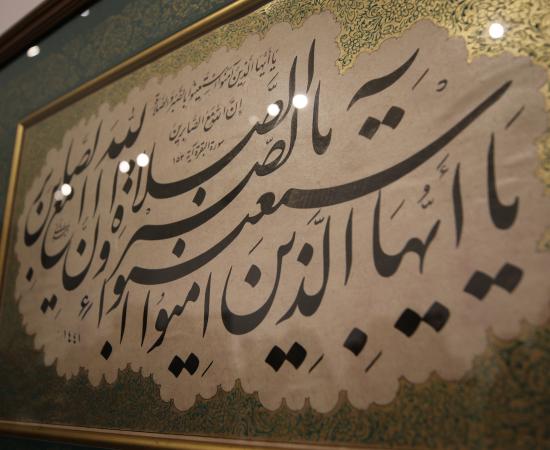 يا أيها الذين آمنوا استعينوا بالصبر والصلاة
إن الله مع الصابرين
سورة البقرة آية ١٥٣
يا أيها الذين امنوا
استعينوا بالصبر
والصلاة إن الله مع الصابرين
١٤٤١